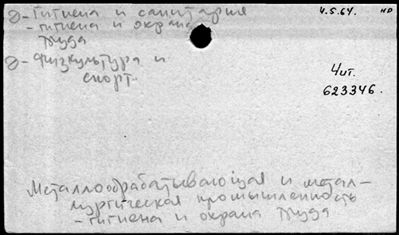 ∂ - Гигиена и санитария
4.5.64. нр
- гигиена и охрана
труда
∂ - Физкультура и
спорт.
Чит.
623346.
Металлообрабатывающая и метал-
лургическая промышленность
- гигиена и охрана труда